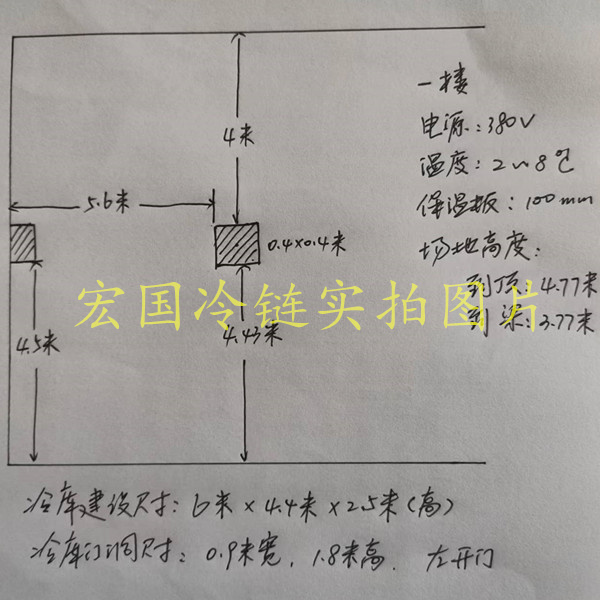 一楼
电源:380V
4米
温度:2~8℃
5.6米
保温板:100mm
0.4×0.4米
场地高度:
到顶:4.77米
宏国冷链实拍图片
到梁:3.77米
4.5米
4.43米
冷库建设尺寸:6米×4.4米×2.5米(高)
冷库门洞尺寸:0.9米宽,1.8米高. 左开门